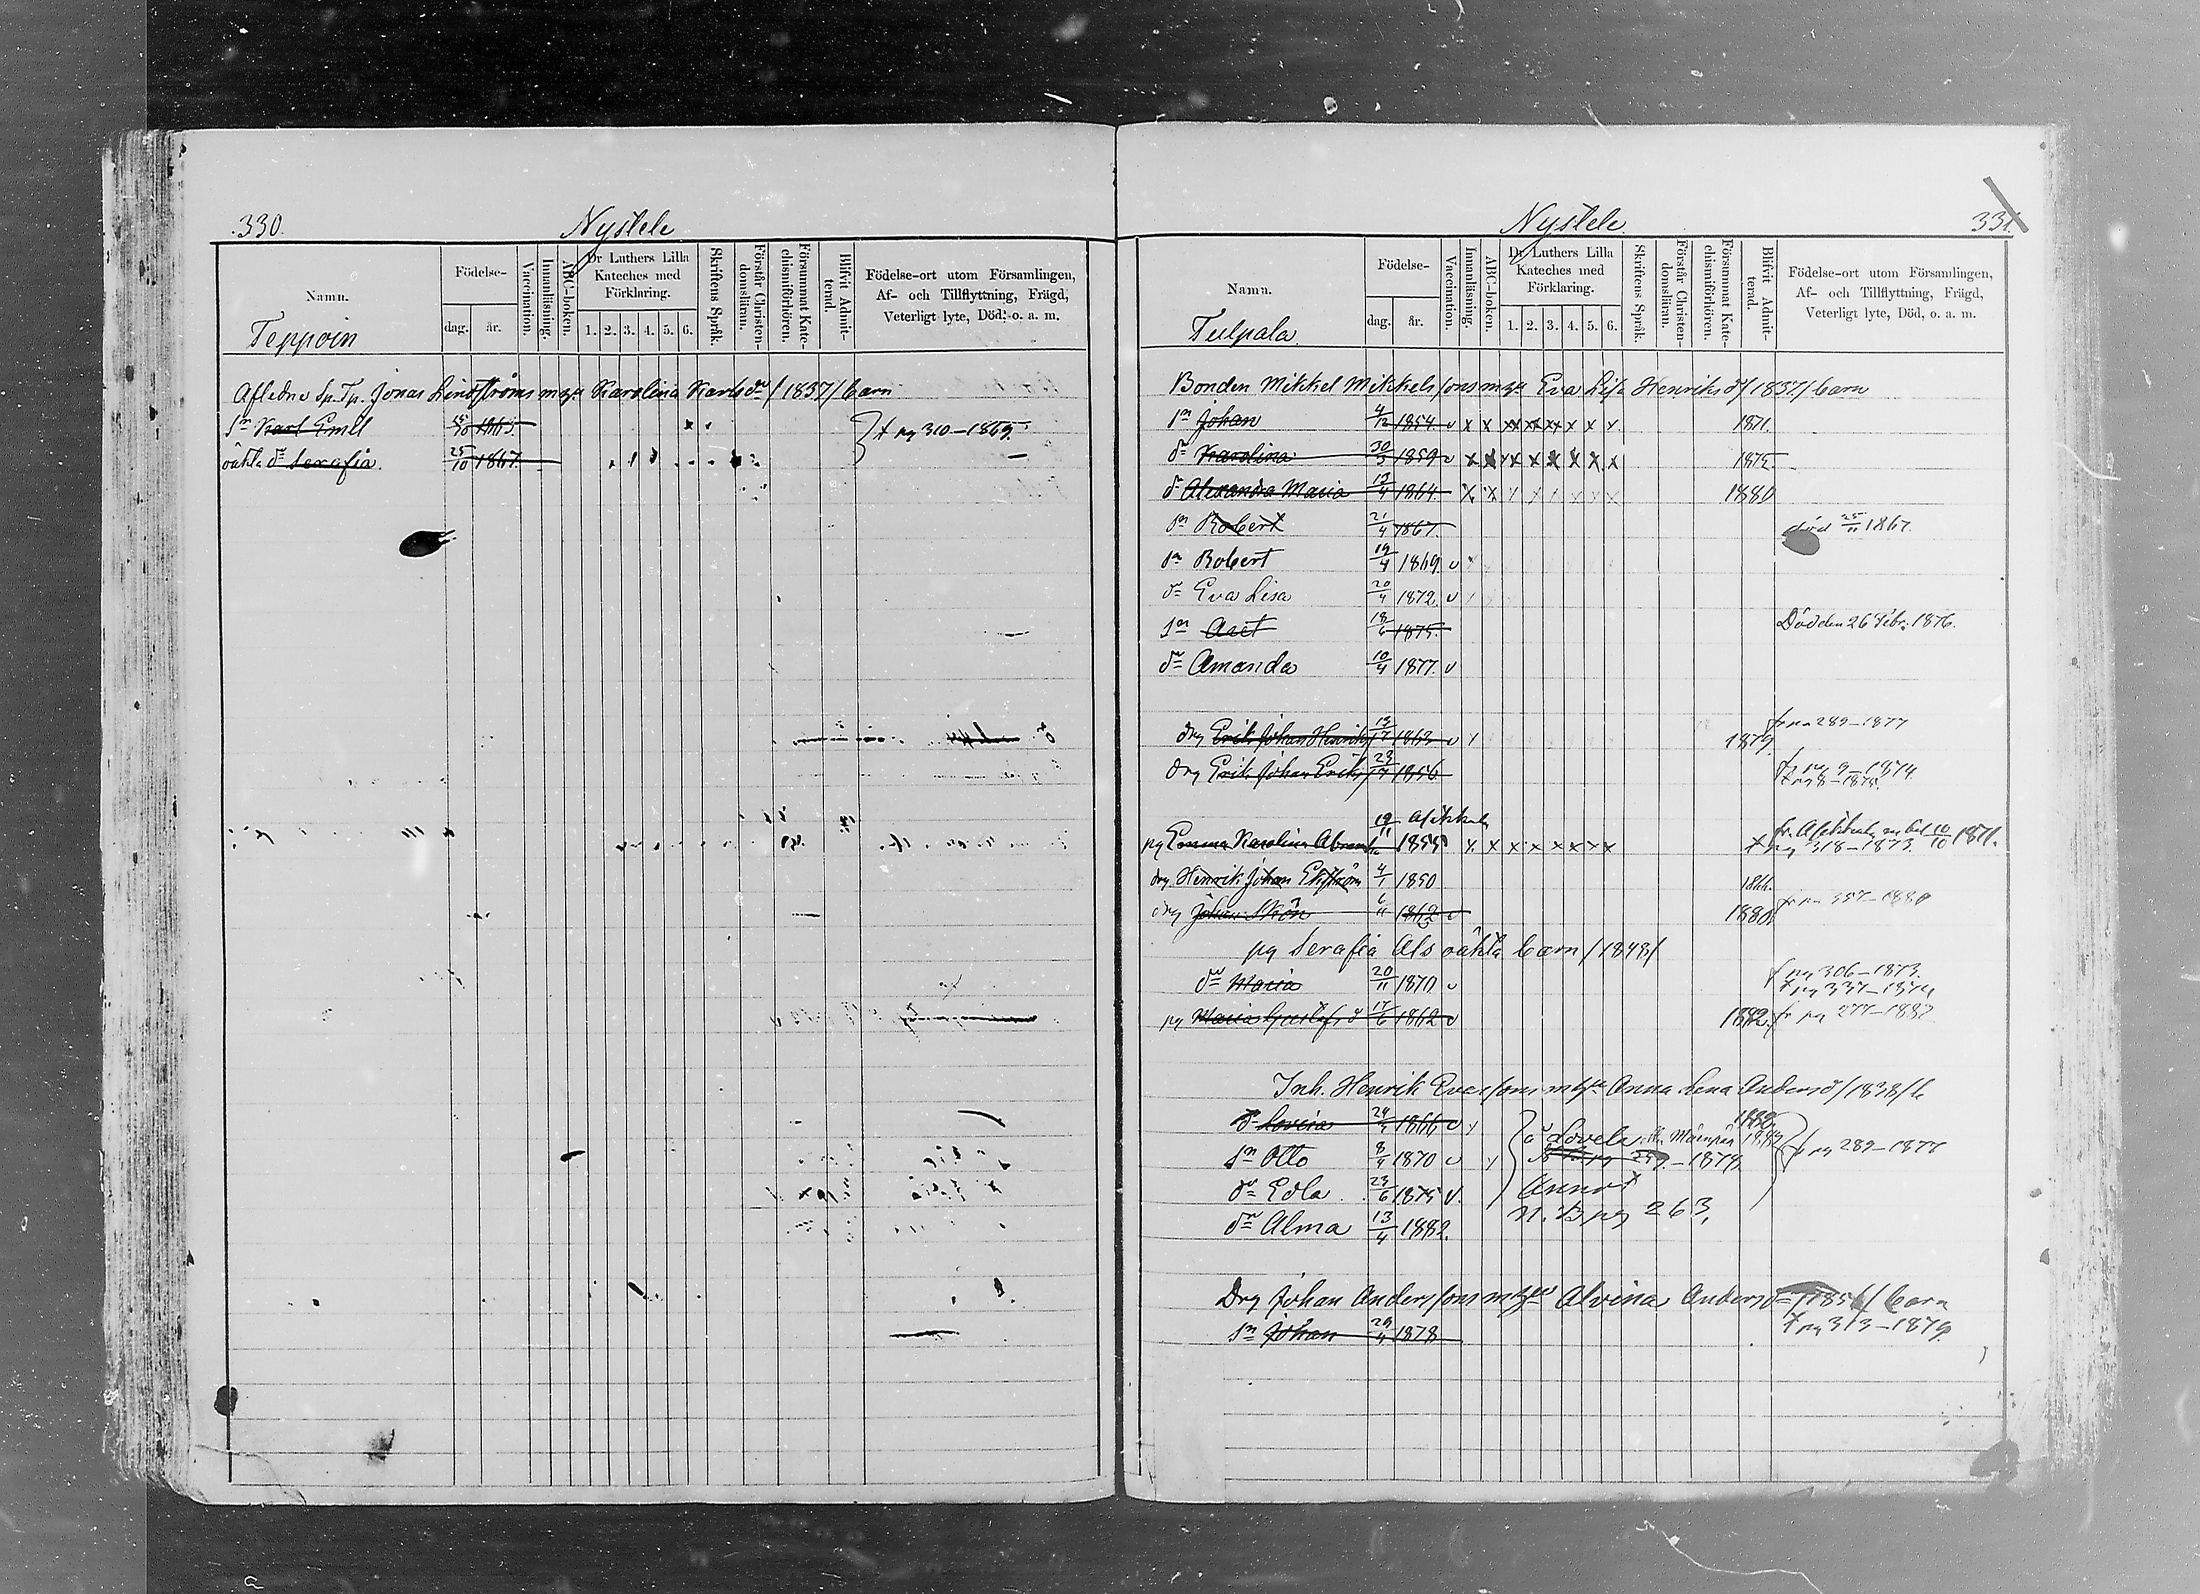 330.
Nystele
Namn.
Teppoin
Födelse-
dag.
år.
Vaccination.
Innanläsning.
ABC-boken.
Dr Luthers Lilla Kateches med Förklaring.
1. 2. 3. 4. 5. 6.
Skriftens Språk.
Förstår Christendomsläran.
Försummat Katechismiförhören.
Blifvit Admitterad.
Födelse-ort utom Församlingen,
Af- och Tillflyttning, Frägd,
Veterligt lyte, Död, o. a. m.
Aflednе Sp. Tp. Jonas Lindströms m hu Karolina Karlsdr /1837/ barn
sn Karl Emil 1863. t pg 310-1869.
oäkta dr Serafia. 25/10 1867.
Nystele
331.
Namn.
Tulpala
Födelse-
dag.
år.
Vaccination.
Innanläsning.
ABC-boken.
Dr Luthers Lilla Kateches med Förklaring.
1. 2. 3. 4. 5. 6.
Skriftens Språk.
Förstår Christendomsläran.
Försummat Katechismiförhören.
Blifvit Admitterad.
Födelse-ort utom Församlingen,
Af- och Tillflyttning, Frägd,
Veterligt lyte, Död, o. a. m.
Bonden Mikkel Mikkelssons m hu Eva Lisa Henriksd /1837/ barn
sn Johan 4/12 1854 v x x xx xx xx x x x 1871.
dr Karolina 30/3 1859 v x x x x x x x x 1875
d Alexandra Maria 12/4 1864. x x x x x x x x 1880
sn Robert 21/4 1867. död 25/11 1867.
sn Robert 19/4 1869 v
dr Eva Lisa 20/4 1872 v
sn Axel 18/6 1875. Död den 26 Febr. 1876.
dr Amanda 10/4 1877. v
drg Erik Johan Henriks 1863 v 1879 fr pg 289-1877
drg Erik Johan Eriks 1856 fr pg 9-1874.
t pg 8-1875.
pg Emma Karolina Abrams 19/11 1855 x x x x x x x x fr. Asikkala m bet 10/10 1871.
t pg 318-1873.
drg Henrik Johan Ekström 4/1 1850 1866.
drg Johan Skön 6/11 1862 v 1880. fr pg 357-1880
pg Serafia Als oäkta barn /1848/
dr Maria 20/11 1870 v f pg 306-1873.
t pg 337-1874
pg Maria Gustafsd 17/6 1862 v 1882. fr pg 277-1882
Inh. Henrik Evertssons m hu Anna Lena Andersd /1838/ b
d Lovisa 1866 v 1882
sn Otto 8/4 1870 v -1878 f pg 289-1877
dr Edla 23/6 1875 v. Annot
N. B pg 263.
dr Alma 13/4 1882.
Drg Johan Anderssons m hu Alvina Andersd /1856/ barn
sn Johan 29/4 1878 t pg 313-1879.